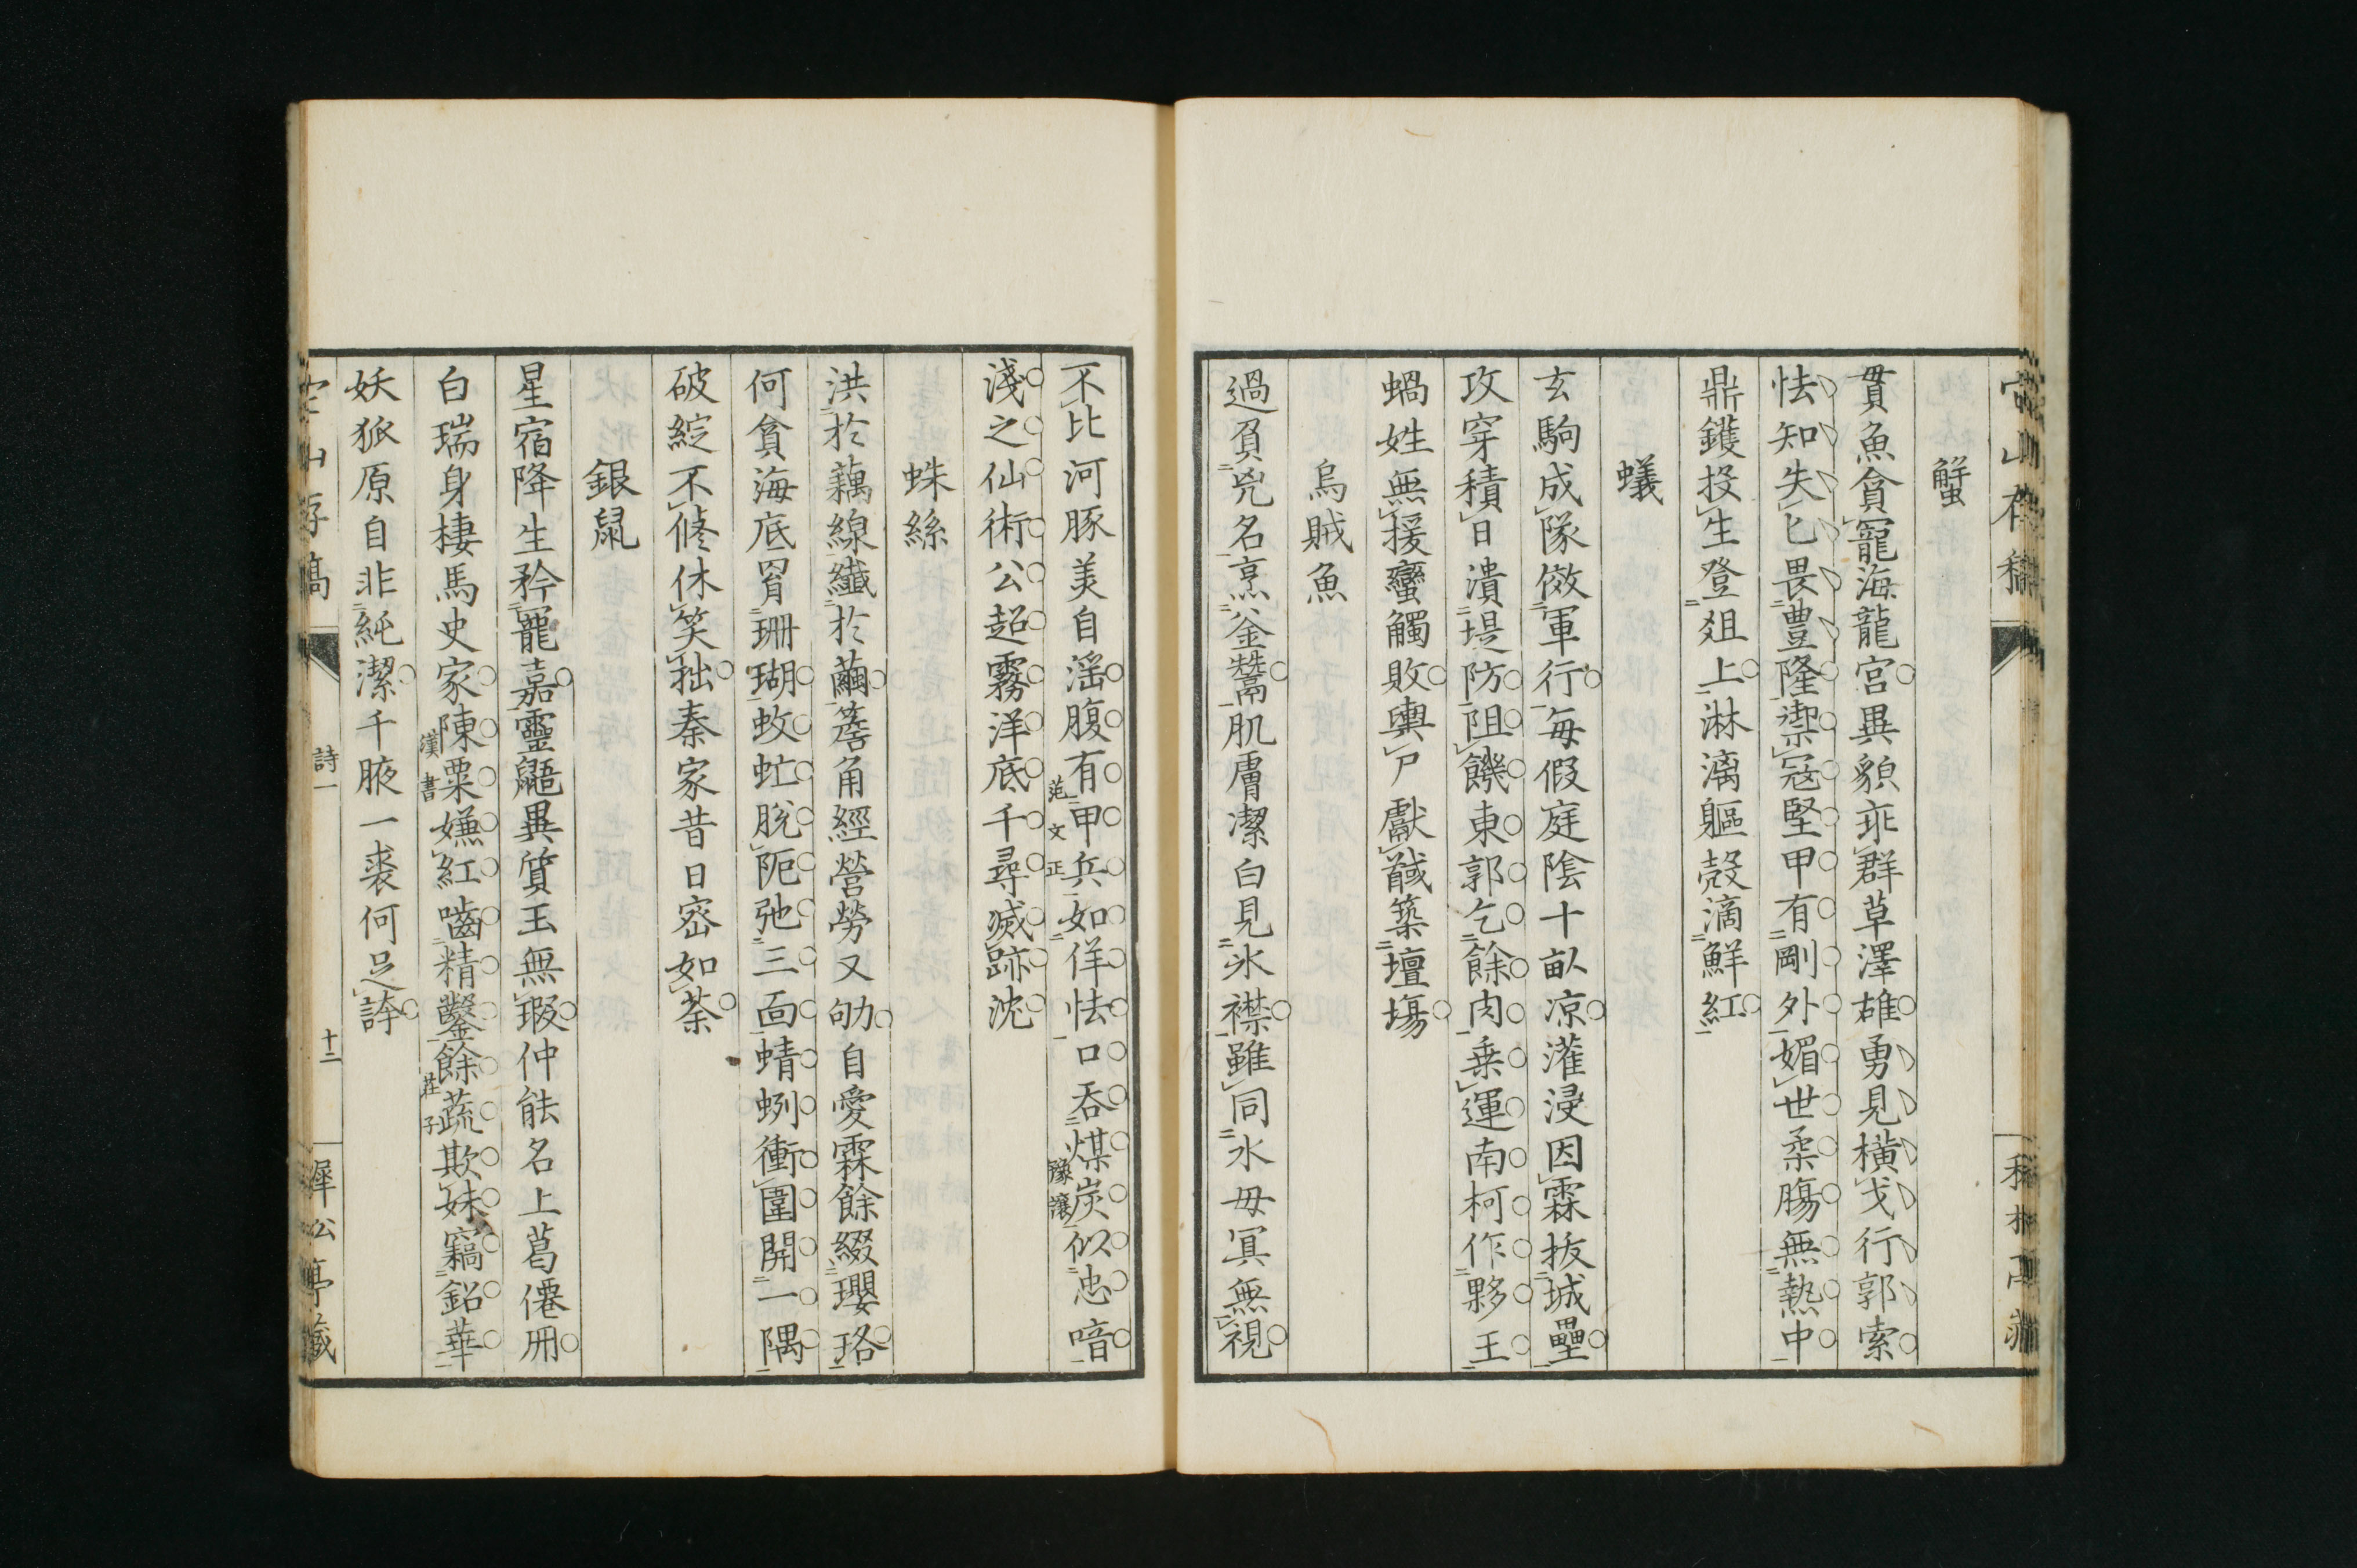 蟹
貫魚貪寵海龍宮異貌乖群草澤雄勇見橫戈行郭索
怯知失匕畏豊隆禦冦堅甲有剛外媚世柔腸無熱中
鼎鑊投生登爼上淋漓軀殼滴鮮紅
蟻
玄駒成隊傚軍行每假庭陰十畝凉灌浸因霖抜城壘
攻穿積日潰堤防阻饑東郭乞餘肉乗運南柯作夥王
蝸姓無援蠻觸敗輿尸獻馘築壇場
烏賊魚
過負兇名烹釜鬵肌膚潔白見氷襟雖同水毋冥無視
不比河豚美自滛腹有甲兵如佯怯口吞煤炭似忠喑
范文正
豫讓
淺之仙術公超霧洋底千尋滅跡沈
蛛絲
洪於藕線纎於繭簷角經營勞又劬自愛霖餘綴瓔珞
何貪海底罥珊瑚蚊虻脫阨弛三面蜻蛚衝圍開一隅
破綻不修休笑拙秦家昔日宻如荼
銀鼠
星宿降生矜寵嘉靈鼯異質玉無瑕仲能名上葛僊冊
白瑞身棲馬史家陳粟嫌紅嚙精鑿餘蔬欺妹竊鉛華
漢書
莊子
妖狐原自非純潔千腋一裘何足誇
詩一
十二